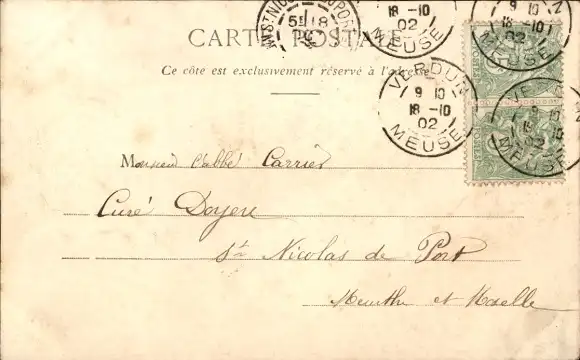 CARTE POSTALE
Ce côte est exclusivement réservé à l'adresse
VERDUN
9 10
18 -10
02
MEUSE
18 -10
02
MEUSE
9 10
18 -10
02
MEUSE
9 10
02
MEUSE
Monsieur l'abbé Carrier
Curé Doyen
St Nicolas de Port
Meurthe et Moselle